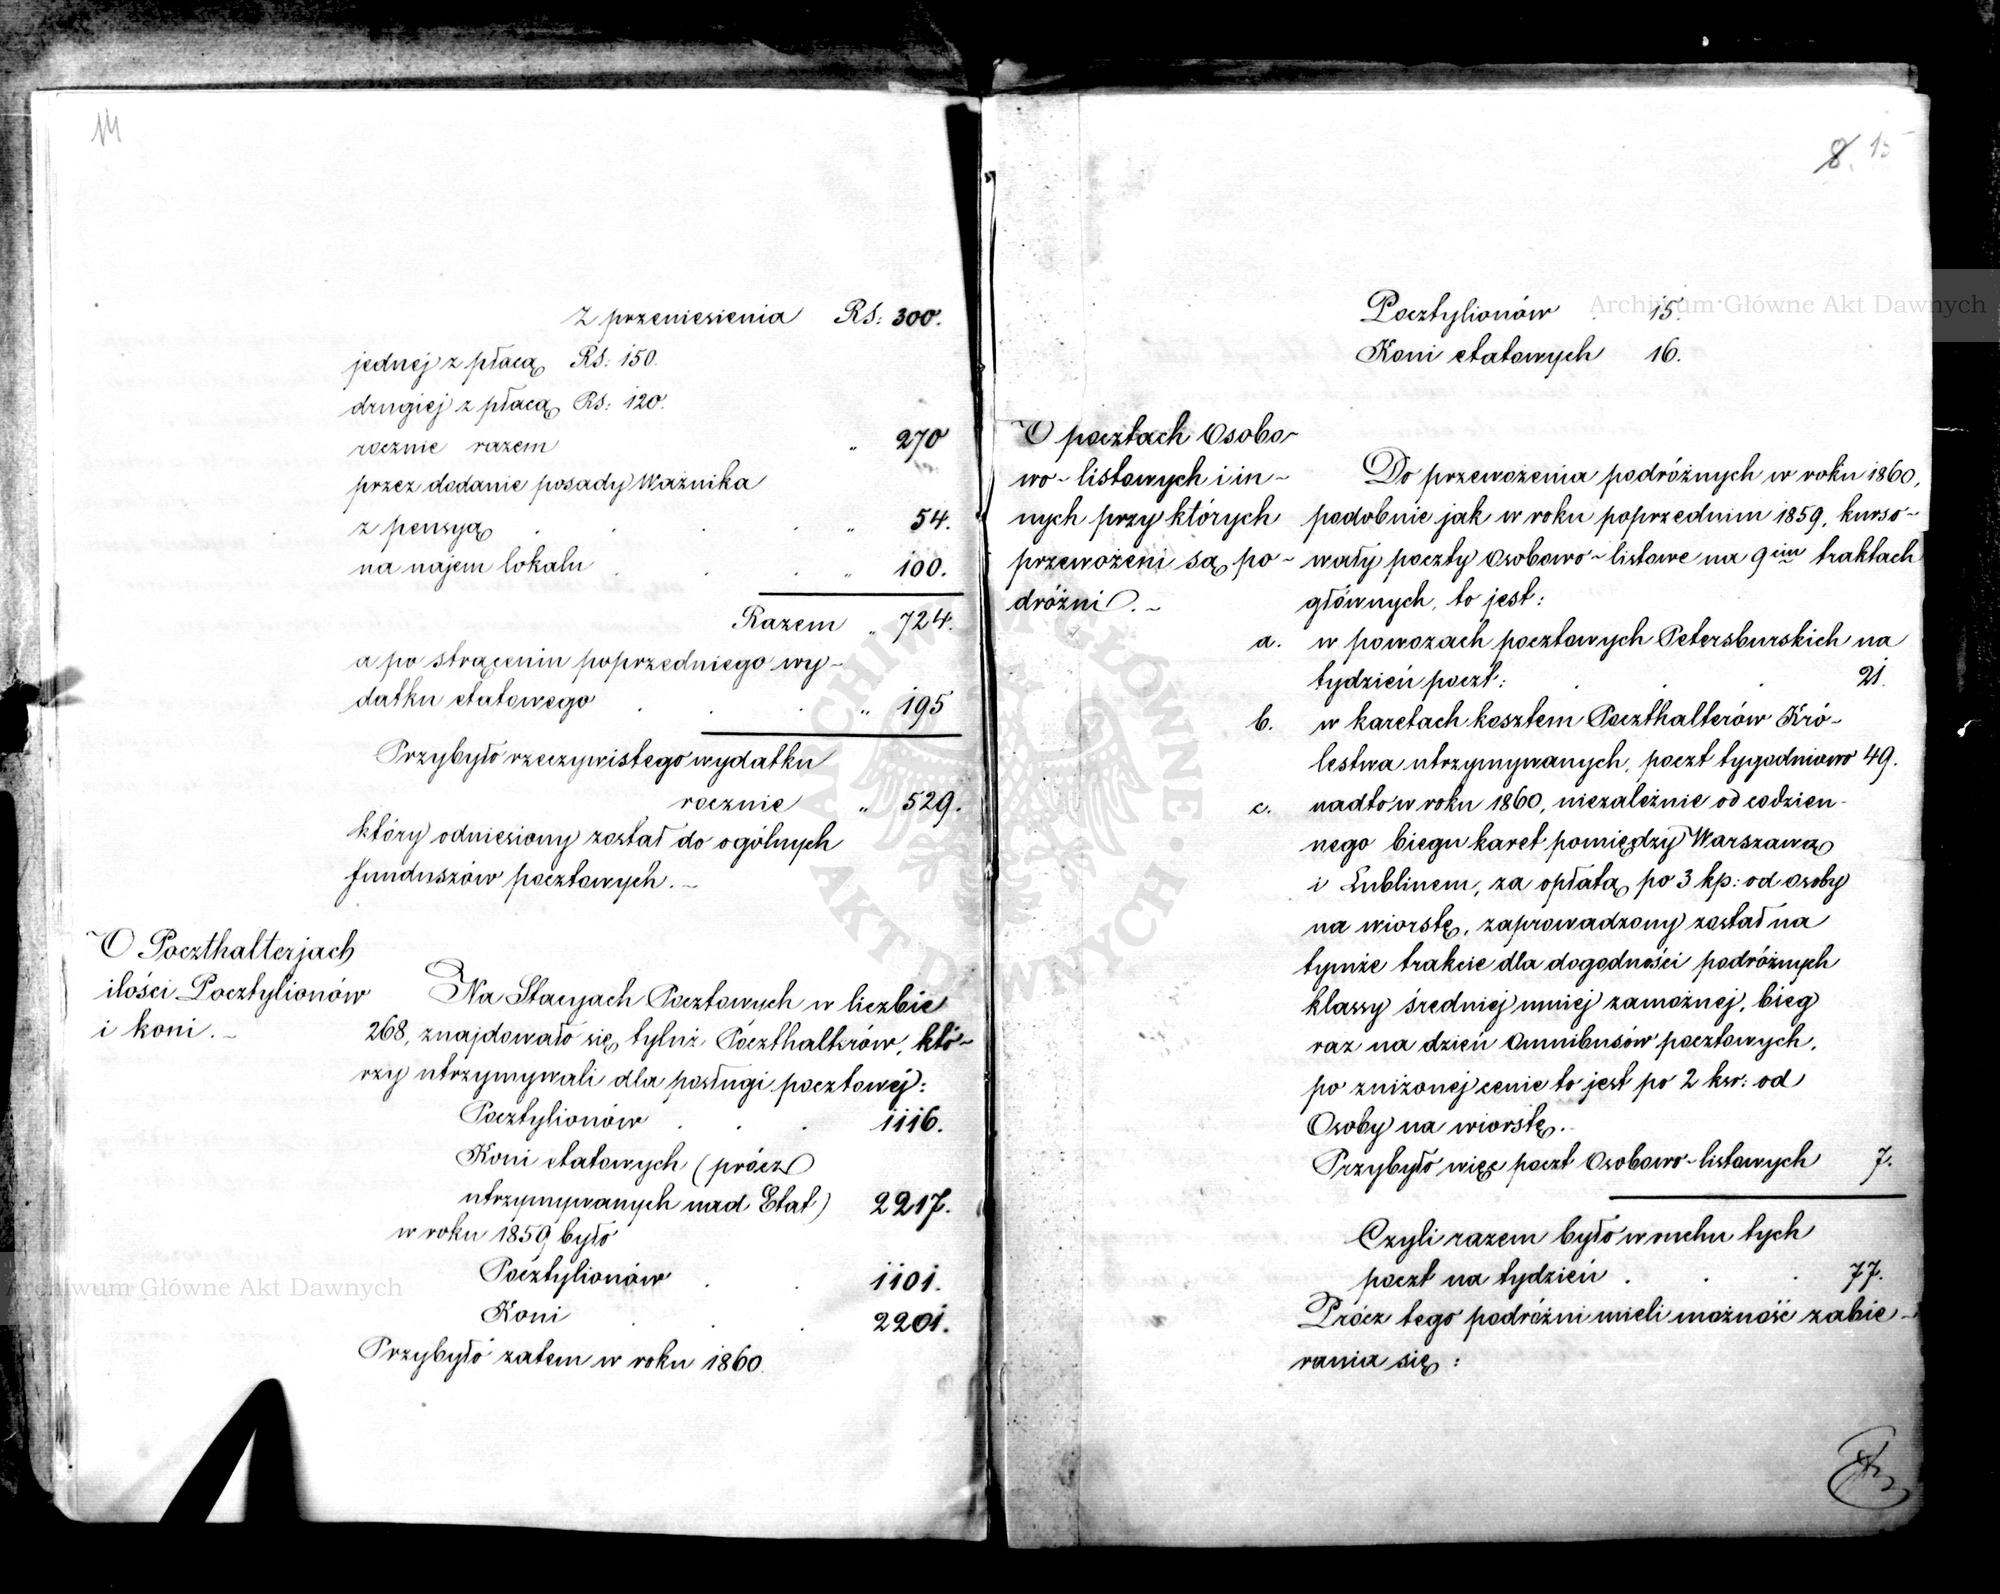 14
Z przeniesienia RS: 300.
jednej z płacą RS: 150.
drugiej z płacą RS: 120.
rocznie razem „ 270
przez dodanie posady Ważnika
z pensyą . . . . „ 54.
na najem lokalu . . . „ 100.
Razem „ 724.
a po strąceniu poprzedniego wy-
datku etatowego . . . „ 195
Przybyło rzeczywistego wydatku
rocznie „ 529.
który odniesiony został do ogólnych
funduszów pocztowych. -
O Poczthalterjach
ilości Pocztylionów
i koni. -
Na Stacyach Pocztowych w liczbie
268, znajdowało się tyluż Poczthalterów, któ-
rzy utrzymywali dla posługi pocztowej:
Pocztylionów . . . 1116.
Koni etatowych (prócz
utrzymywanych nad Etat) 2217.
w roku 1859 było
Pocztylionów . . 1101.
Koni . . . 2201.
Przybyło zatem w roku 1860.
8. 15
Pocztylionów . 15.
Koni etatowych 16.
O pocztach Osobo-
wo-listowych i in-
nych przy których
przewożeni są po-
dróżni. -
Do przewożenia podróżnych w roku 1860,
podobnie jak w roku poprzednim 1859, kurso-
wały poczty Osobowo-listowe na 9ciu traktach
głównych, to jest:
a. w powozach pocztowych Petersburskich na
tydzień poczt: . . . 21.
b. w karetach kosztem Poczthalterów Kró-
lestwa utrzymywanych, poczt tygodniowo 49.
c. nadto w roku 1860, niezależnie od codzien-
nego biegu karet pomiędzy Warszawą
i Lublinem, za opłatą po 3 kp: od osoby
na wiorstę, zaprowadzony został na
tymże trakcie dla dogodności podróżnych
klassy średniej mniej zamożnej, bieg
raz na dzień Omnibusów pocztowych,
po zniżonej cenie to jest po 2 kw: od
Osoby na wiorstę. -
Przybyło więc poczt Osobowo-listowych 7.
Czyli razem było w ruchu tych
poczt na tydzień . . . 77.
Prócz tego podróżni mieli możność zabie-
rania się:
Archiwum Główne Akt Dawnych
Archiwum Główne Akt Dawnych
ARCHIWUM GŁÓWNE AKT DAWNYCH